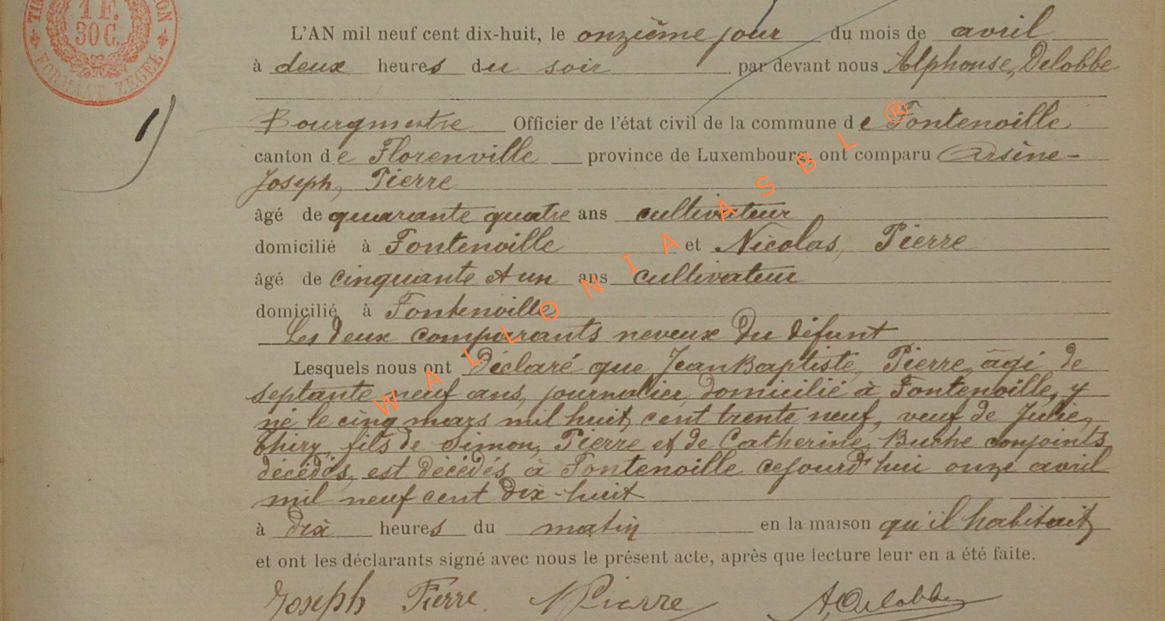 1 F.
30 C.
FORMAAT ZEGEL
1)
L'AN mil neuf cent dix-huit, le onzième jour du mois de avril
à deux heures du soir par devant nous Alphonse, Delobbe
Bourgmestre Officier de l'état civil de la commune de Fontenoille
canton de Florenville province de Luxembourg, ont comparu Arsène-
Joseph, Pierre
âgé de quarante quatre ans cultivateur
domicilié à Fontenoille et Nicolas, Pierre
âgé de cinquante et un ans cultivateur
domicilié à Fontenoille
Les deux comparants neveux du défunt
Lesquels nous ont déclaré que Jean Baptiste, Pierre, âgé de
septante neuf ans, journalier, domicilié à Fontenoille, y
né le cinq mars mil huit cent trente neuf, veuf de Julie,
Thiry, fils de Simon, Pierre et de Catherine, conjoints
décédés, est décédés à Fontenoille cejourd'hui onze avril
mil neuf cent dix-huit
à dix heures du matin en la maison qu'il habitait
et ont les déclarants signé avec nous le présent acte, après que lecture leur en a été faite.
Joseph Pierre. N Pierre A. Delobbe
WALLONIA ASBL ®